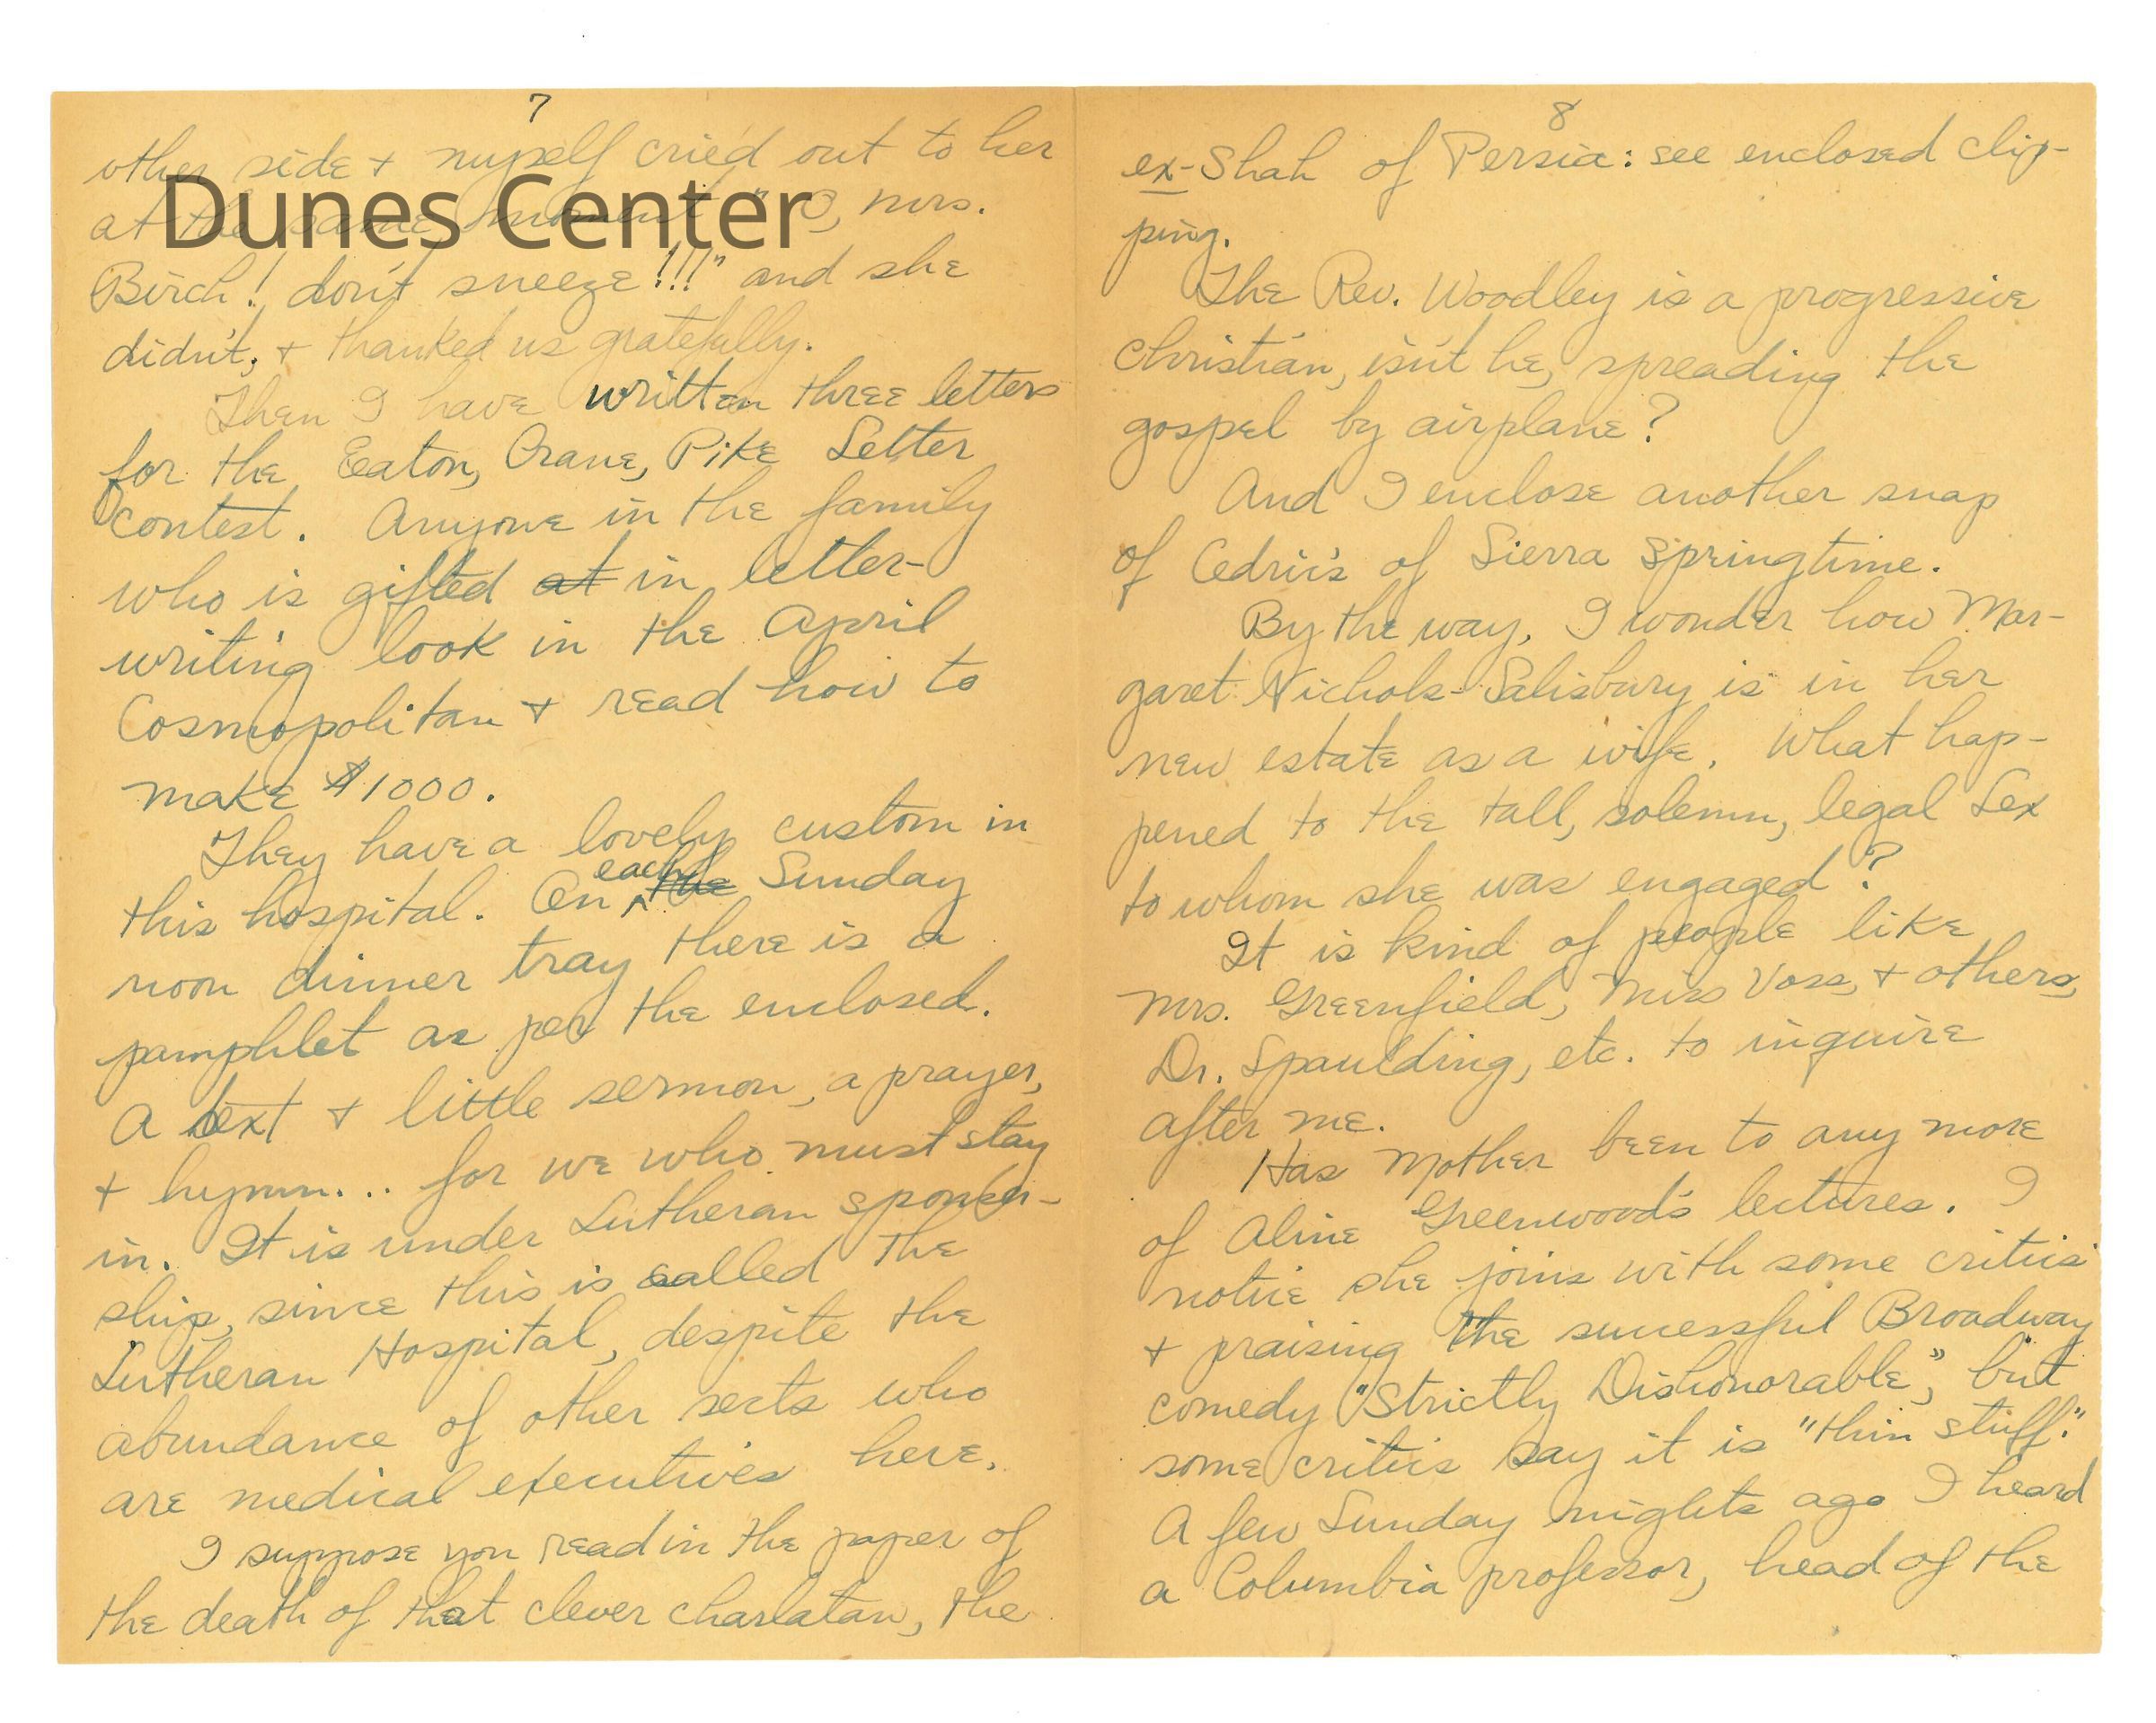 7
other side + myself cried out to her
at the same moment "O, Mrs.
Dunes Center
Birch! don't sneeze!!!" and she
didn't, + thanked us gratefully.
Then I have written three letters
for the Eaton, Crane, Pike Letter
contest. Anyone in the family
who is gifted at in letter-
writing look in the April
Cosmopolitan + read how to
make $1000.
They have a lovely custom in
this hospital. On each the Sunday
noon dinner tray there is a
pamphlet as per the enclosed.
A text + little sermon, a prayer,
+ hymn... for we who must stay
in. It is under Lutheran sponser-
ship, since this is called The
Lutheran Hospital, despite the
abundance of other sects who
are medical executives here.
I suppose you read in the paper of
the death of that clever charlatan, the
8
ex-Shah of Persia: see enclosed clip-
ping.
The Rev. Woodley is a progressive
Christian, isn't he, spreading the
gospel by airplane?
And I enclose another snap
of Cedric's of Sierra Springtime.
By the way, I wonder how Mar-
garet Nichols-Salisbury is in her
new estate as a wife. What hap-
pened to the tall, solemn, legal Lex
to whom she was engaged?
It is kind of people like
Mrs. Greenfield, Miss Voss, + others,
Dr. Spaulding, etc. to inquire
after me.
Has Mother been to any more
of Aline Greenwood's lectures. I
notice she joins with some critics
+ praising the successful Broadway
comedy "Strictly Dishonorable", but
some critics say it is "thin stuff."
A few Sunday nights ago I heard
a Columbia professor, head of the